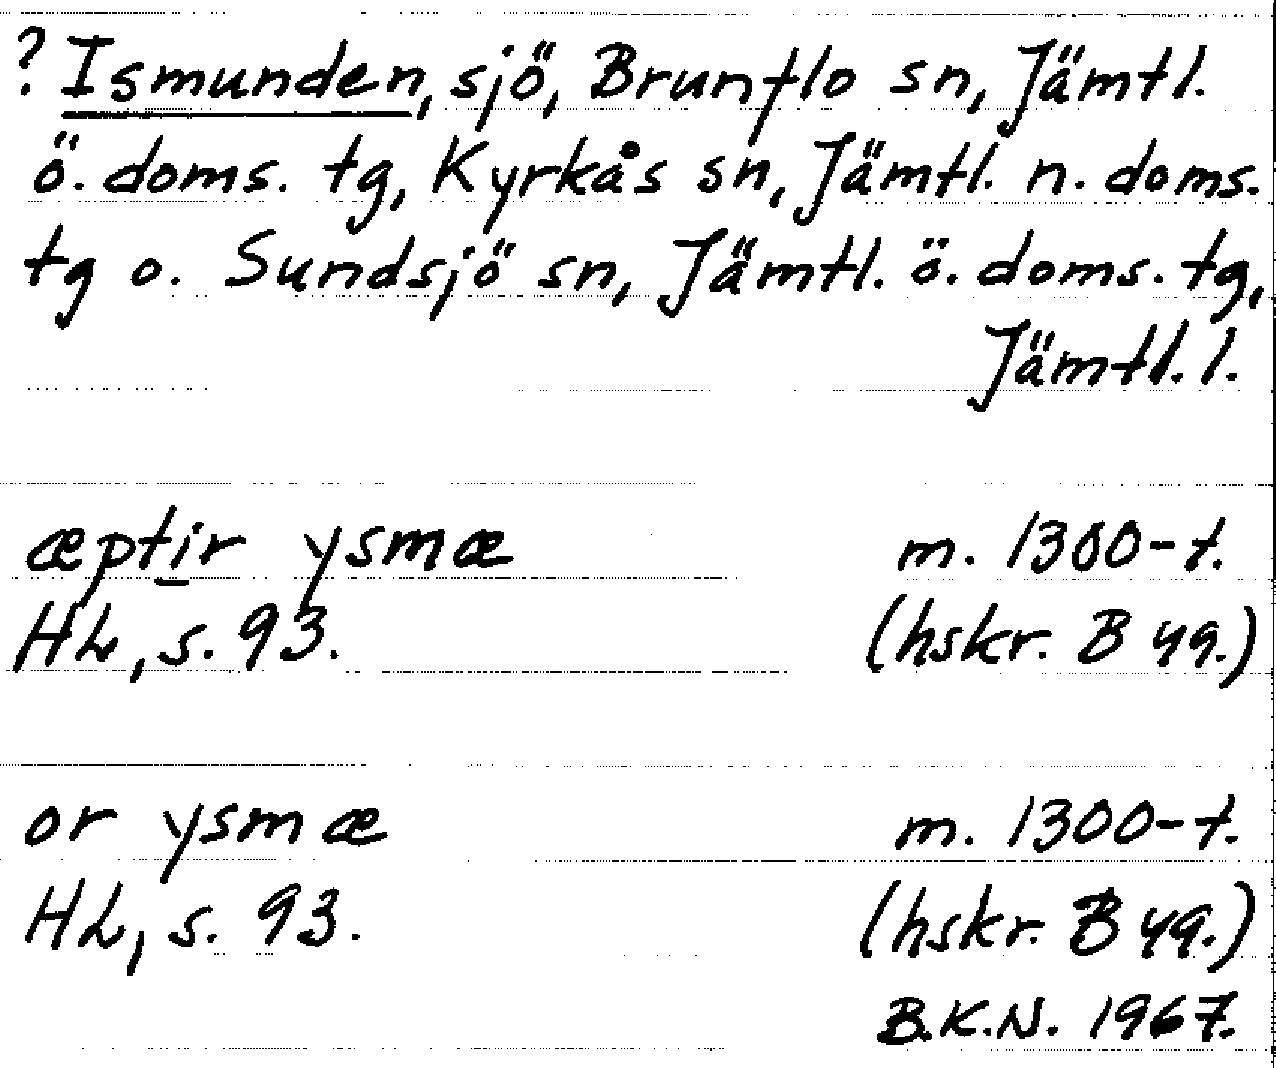 ? Ismunden, sjö, Brunflo sn, Jämtl.
ö. doms. tg, Kyrkås sn, Jämtl. n. doms.
tg o. Sundsjö sn, Jämtl. ö. doms. tg,
Jämtl. l.
æptir ysmæ m. 1300-t.
HL, s. 93. (hskr. B 49.)
or ysmæ m. 1300-t.
HL, s. 93. (hskr. B 49.)
B.K.N. 1967.